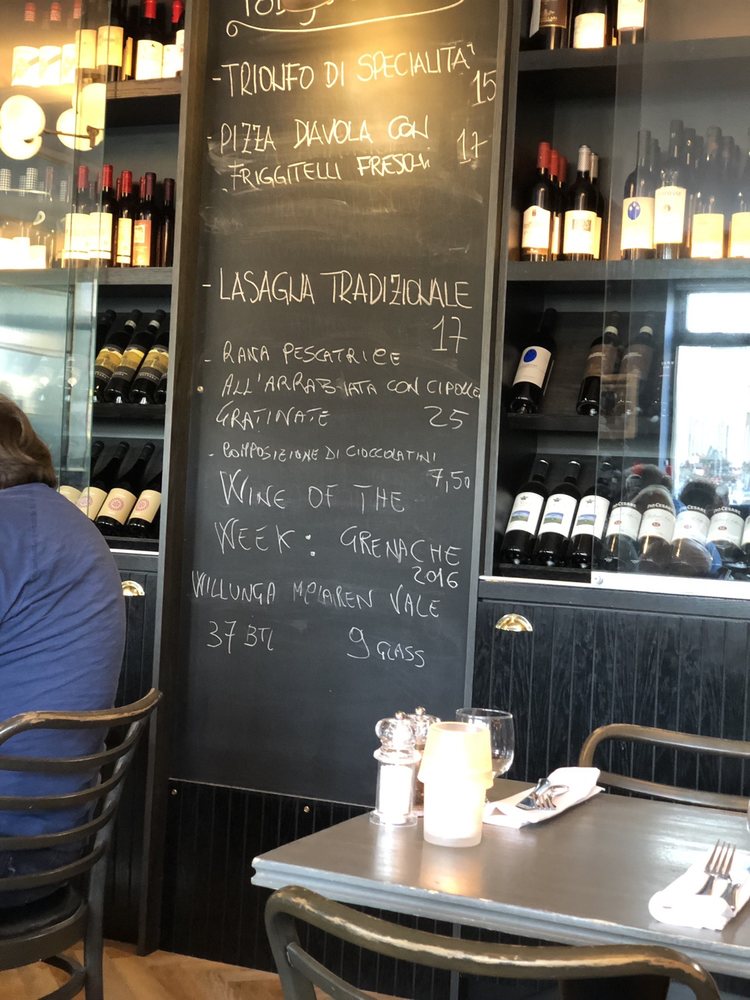 - TRIONFO DI SPECIALITA'
15
- PIZZA DIAVOLA CON
FRIGGITELLI FRESCHI
17
- LASAGNA TRADIZIONALE
17
- RANA PESCATRICE
ALL'ARRABBIATA CON CIPOLLE
GRATINATE 25
- COMPOSIZIONE DI CIOCCOLATINI
7,50
WINE OF THE
WEEK: GRENACHE
2016
WILLUNGA McLAREN VALE
37 BTL 9 GLASS
PIO CESARE